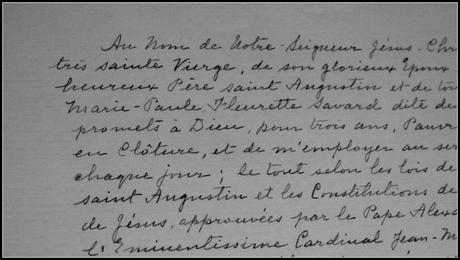 Au Nom de Notre-Seigneur Jésus-Chr
très sainte Vierge, de son glorieux Epoux
heureux Père saint Augustin et de tou
Marie-Paule Fleurette Savard dite de
promets à Dieu, pour trois ans, Pauvr
en Clôture, et de m'employer au ser
chaque jour; le tout selon les lois de
saint Augustin et les Constitutions de
de Jésus, approuvées par le Pape Alexa
l'Eminentissime Cardinal Jean-M